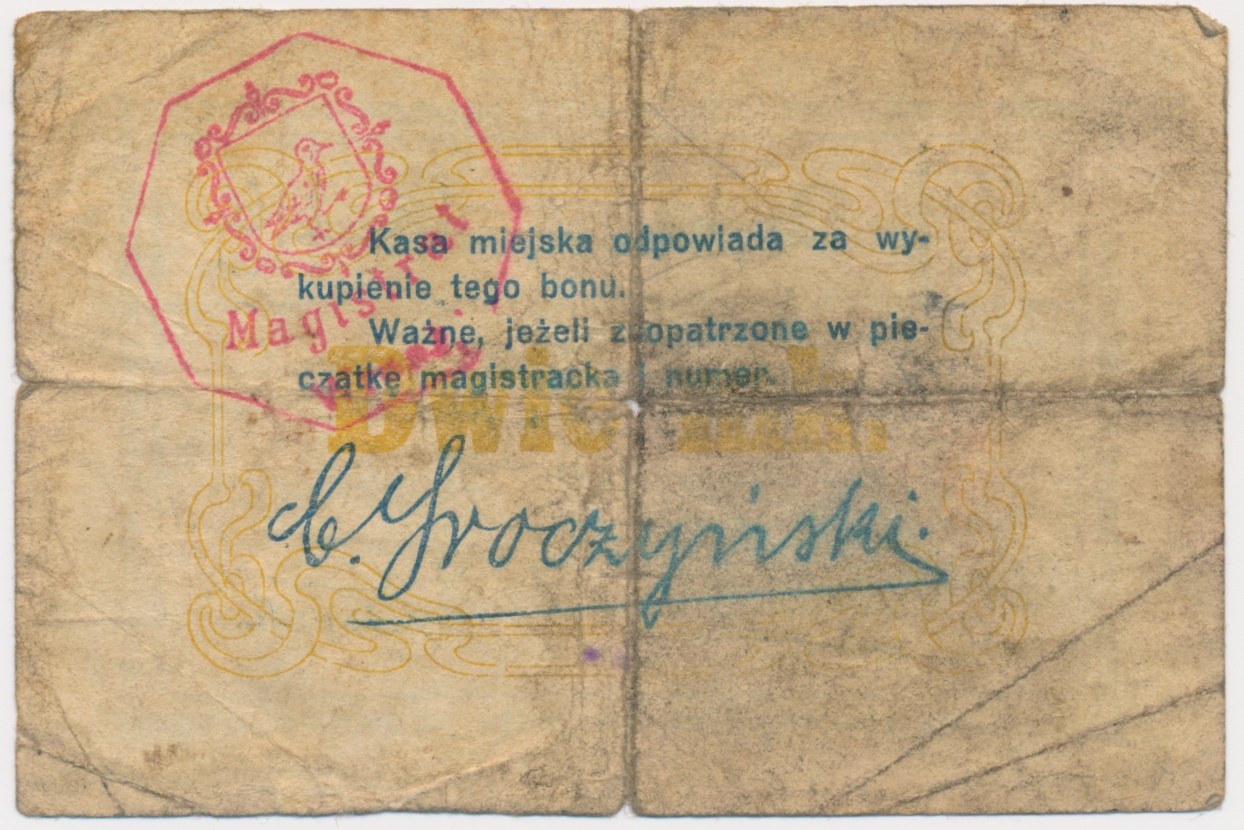 Kasa miejska odpowiada za wy-
kupienie tego bonu.
Ważne, jeżeli zaopatrzone w pie-
czątkę magistracką i numer.
Magistrat
Dwie
C. Groczyński.